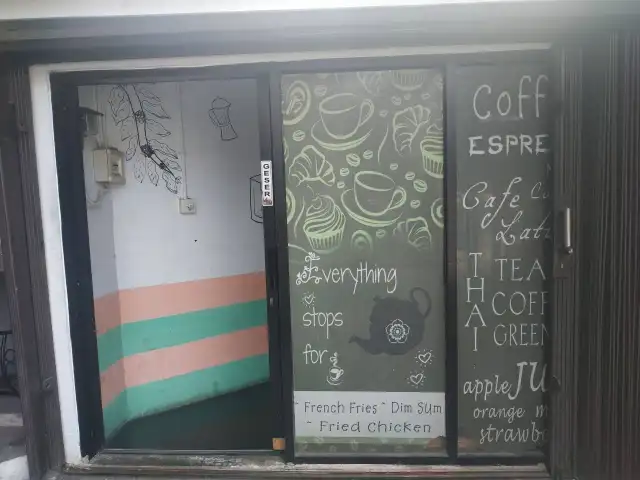 GESER
Everything
stops
for
~ French Fries ~ Dim Sum
~ Fried Chicken
Coff
ESPRE
Cafe
THAI
TEA
COFF
GREEN
apple JU
orange m
strawb